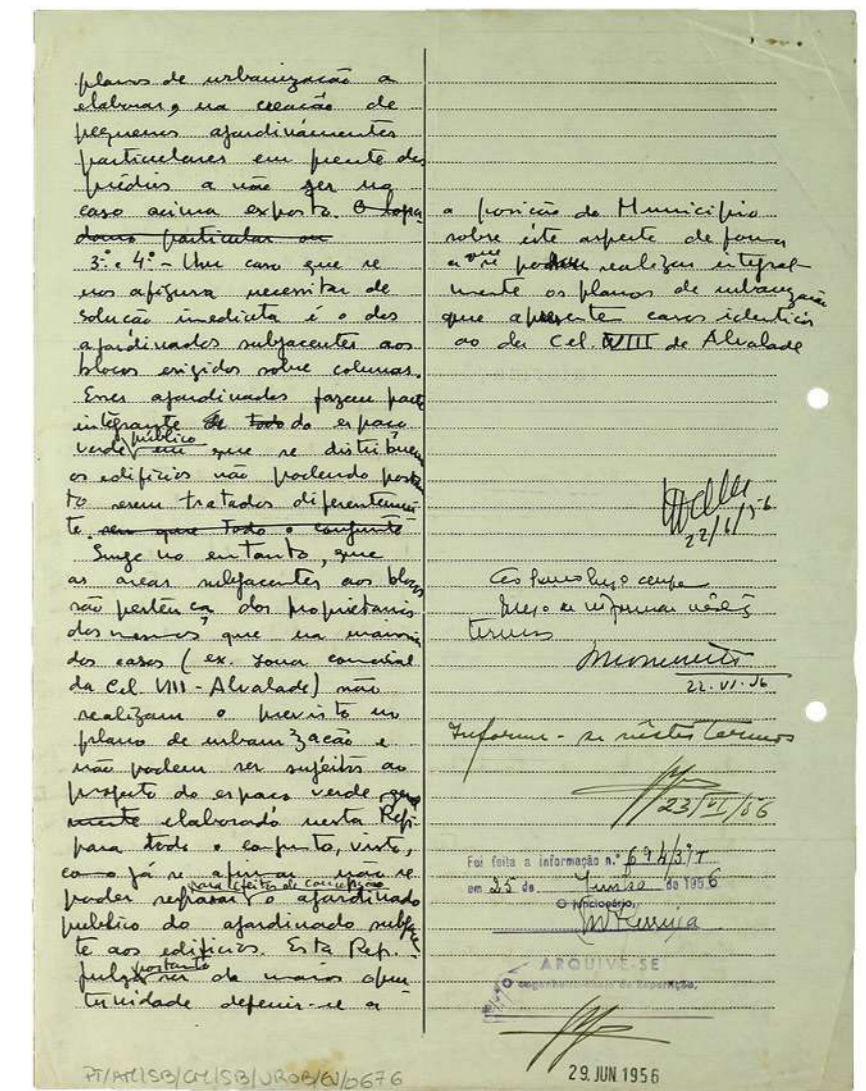 planos de urbanização a
elaborar, na creação de
pequenos ajardinamentos
particulares em frente dos
prédios a não ser no
caso acima exposto. O
particular ou
3.º e 4.º - Um caso que se
nos afigura necessitar de
solução imediata é o dos
ajardinados subjacentes aos
blocos erigidos sobre colunas.
Esses ajardinados fazem parte
integrante de todo do espaço
verde público em que se distribuem
os edifícios não podendo portan
to serem tratados diferentemen
te. sem que todo o conjunto
Surge no entanto, que
as areas subjacentes aos blocos
são pertença dos proprietarios
dos mesmos, que na maioria
dos casos (ex. zona comercial
da Cel. VIII - Alvalade) não
realizam o previsto no
plano de urbanização e
não podem ser sujeitos ao
projecto do espaço verde
elaborado nesta Rep.
para todo o conjunto, visto,
como já se afirmou não se
poder separar para efeitos de concepção o ajardinado
publico do ajardinado subjacen
te aos edifícios. Esta Rep.
julga portanto ser da maior opor
tunidade defenir-se a
a posição do Municipio
sobre êste aspecto de forma
a que se realizar integral
mente os planos de urbanização
que apresente casos identicos
ao da Cel. VIII de Alvalade
22/6/56
termos
22.VI.56
Informe-se nêstes termos
23/VI/56
Foi feita a informação n.º 694/37
em 25 de Junho de 1956
O funcionário,
ARQUIVE-SE
O engenheiro chefe da Repartição,
29. JUN 1956
PT/AMLSB/CMLSB/UROB/EV/0676